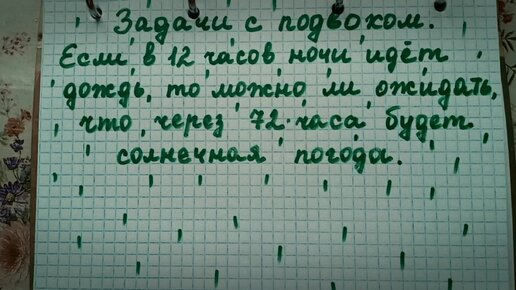 Задачи с подвохом.
Если в 12 часов ночи идёт
дождь, то можно ли ожидать,
что через 72 часа будет
солнечная погода.